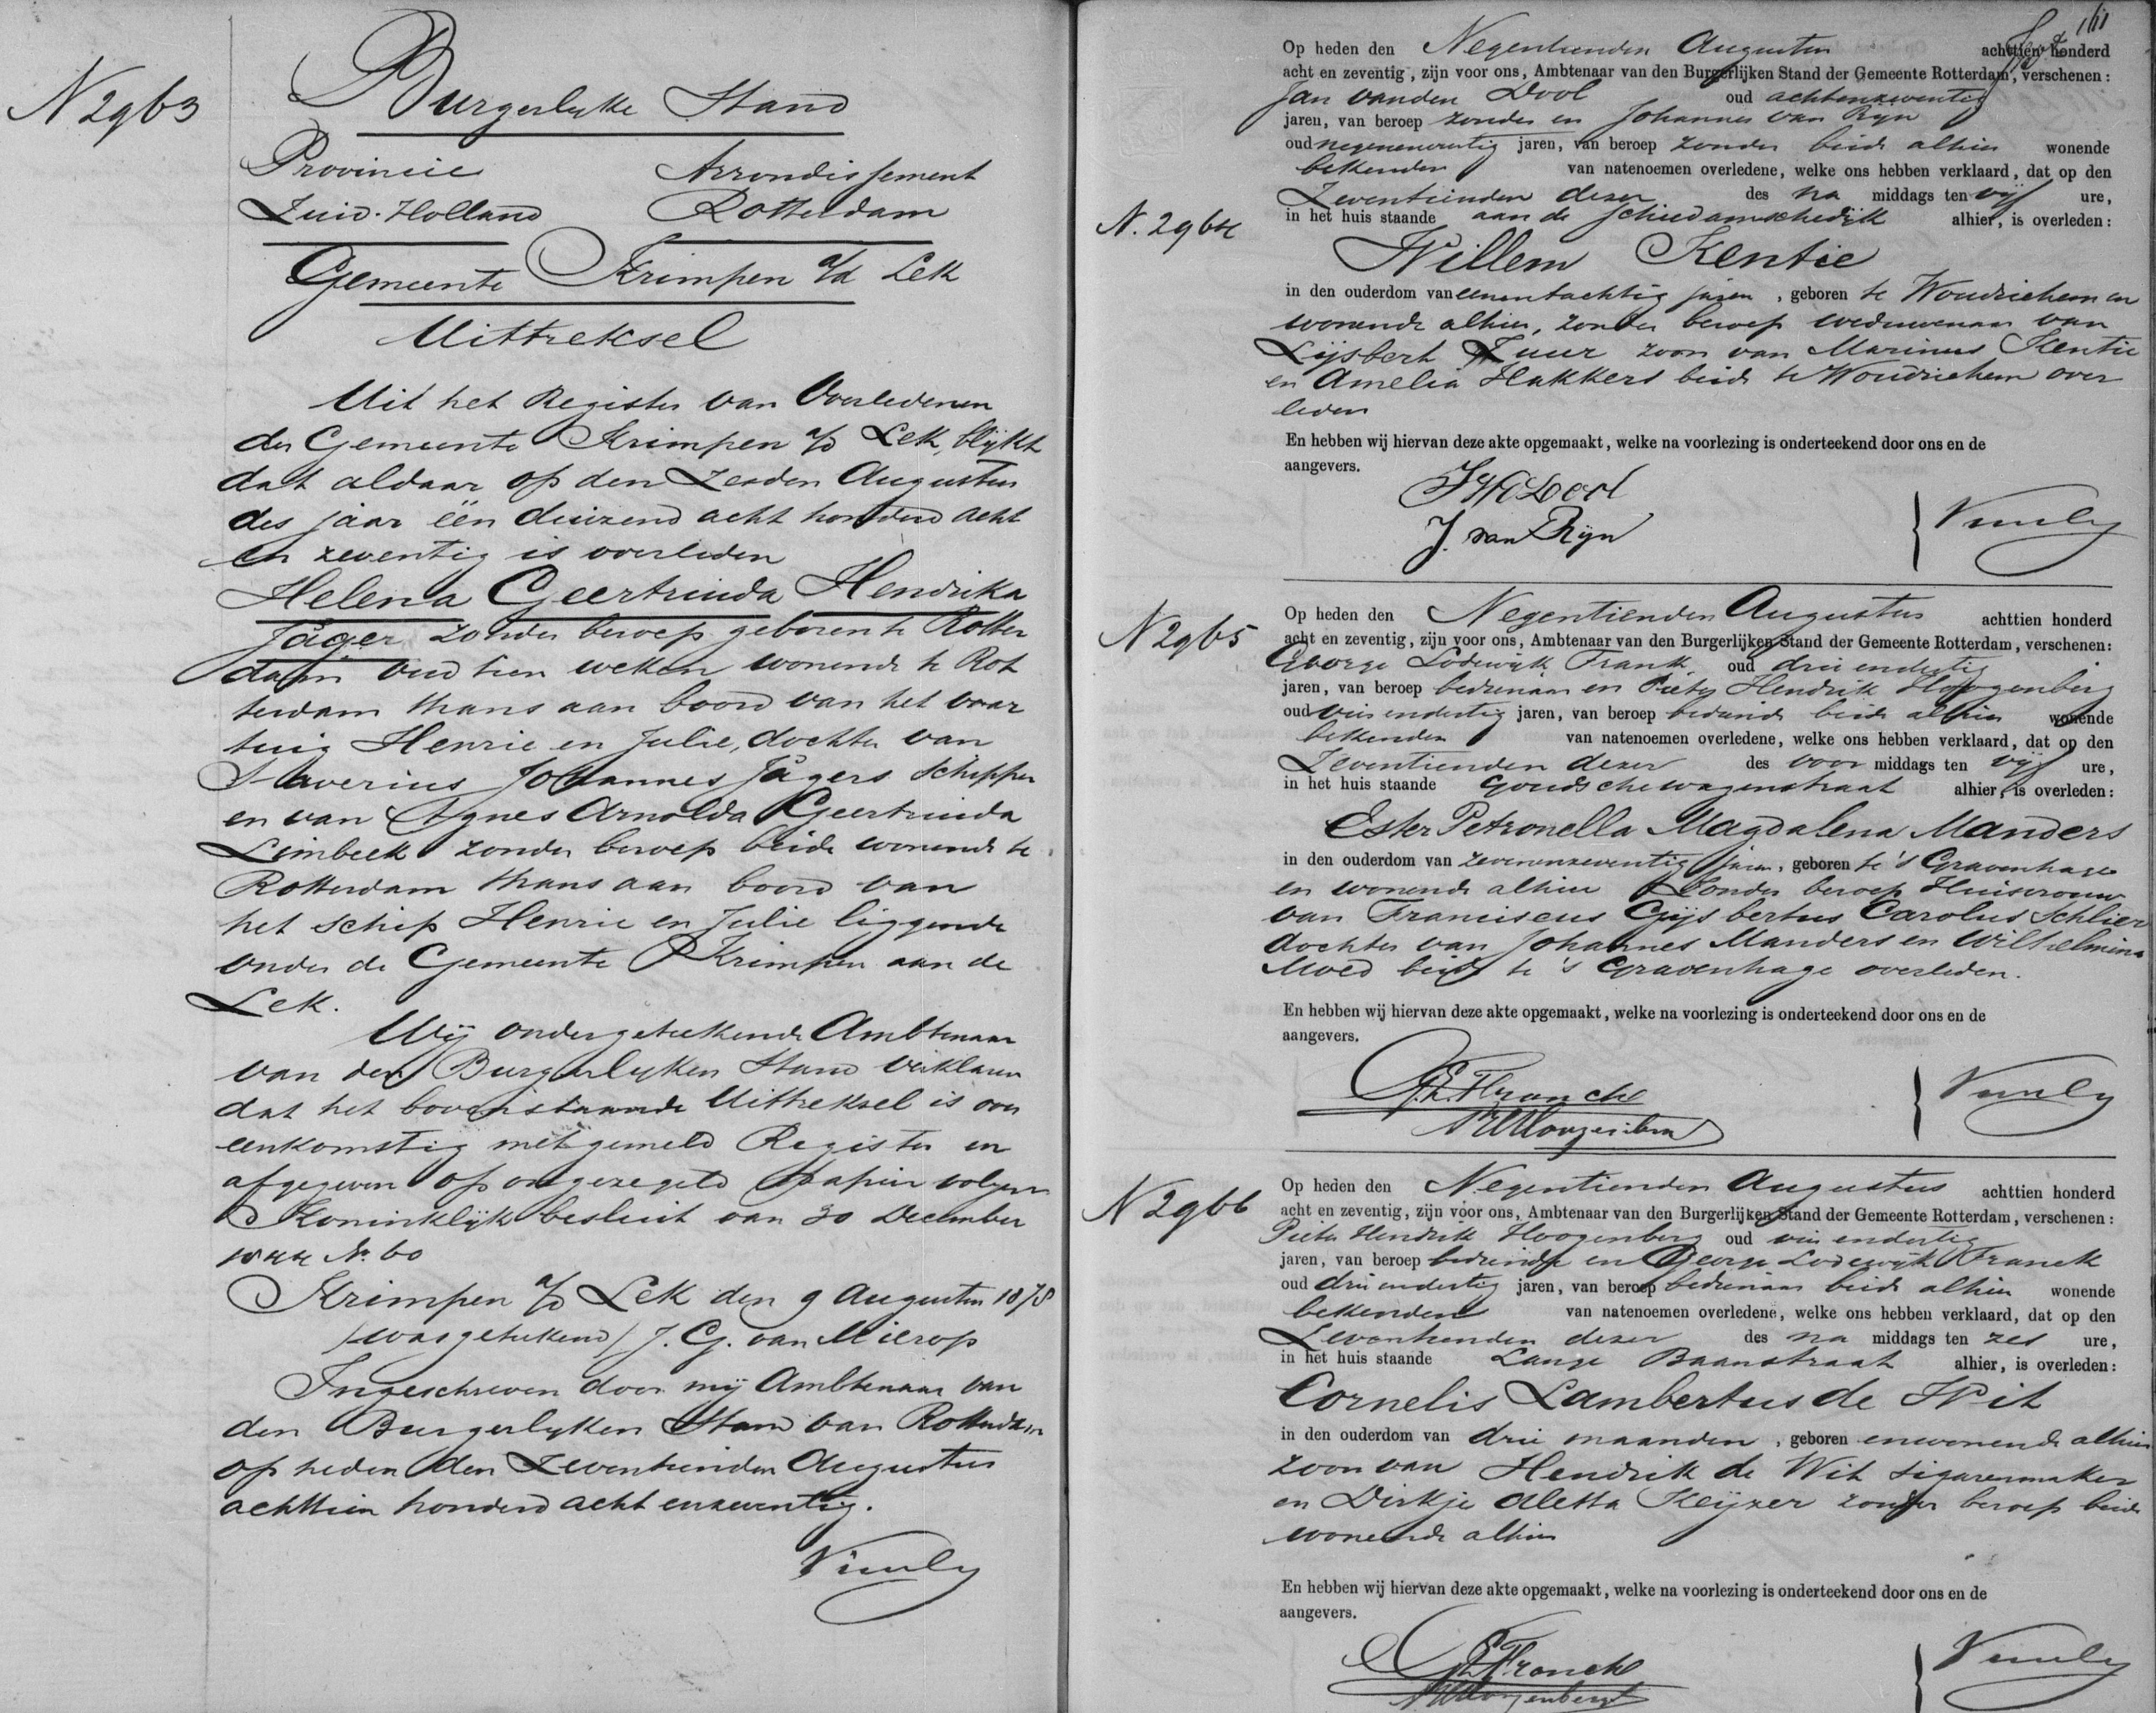 N 2963
Burgerlijke Stand
Provincie Arrondissement
Zuid-Holland Rotterdam
Gemeente Krimpen a/d Lek
Uittreksel
Uit het Register van Overledenen
der Gemeente Krimpen a/d Lek, blijkt
dat aldaar op den Zesden Augustus
des jaar één duizend acht honderd acht
en zeventig is overleden
Helena Geertruida Hendrika
Jäger zonder beroep geboren te Rotter
dam oud tien weken wonende te Rot
terdam thans aan boord van het vaar
tuig Henrie en Julie, dochter van
Xaverius Johannes Jägers Schipper
en van Agnes Arnolda Geertruida
Limbeek zonder beroep beide wonende te
Rotterdam thans aan boord van
het schip Henrie en Julie liggende
onder de Gemeente Krimpen aan de
Lek.
Wij ondergeteekende Ambtenaar
van den Burgerlijken Stand verklaren
dat het bovenstaande Uittreksel is over
eenkomstig met gemeld Register en
afgegeven op ongezegeld papier volgens
Koninklijk besluit van 30 December
No. 60
Krimpen a/d Lek den 9 Augustus 1878
/was getekend/ J. G. van Mierop
Ingeschreven door mij Ambtenaar van
den Burgerlijken Stand van Rotterdam
op heden den Zeventienden Augustus
achttien honderd acht en zeventig.
Op heden den Negentienden Augustus achttien honderd
acht en zeventig, zijn voor ons, Ambtenaar van den Burgerlijken Stand der Gemeente Rotterdam, verschenen:
Jan van den Dool oud achtenzeventig
jaren, van beroep zonder en Johannes van Rijn
oud negenenveertig jaren, van beroep zonder beide alhier wonende
bekenden van natenoemen overledene, welke ons hebben verklaard, dat op den
Zeventienden dezer des na middags ten vijf ure,
N. 2964
in het huis staande aan de Schiedamschedijk alhier, is overleden:
Willem Kentie
in den ouderdom van eenentachtig jaren, geboren te Woudrichem en
wonende alhier, zonder beroep weduwenaar van
Lijsbert Zuur zoon van Marinus Kentie
en Amelia Hakkers beide te Woudrichem over
leden
En hebben wij hiervan deze akte opgemaakt, welke na voorlezing is onderteekend door ons en de
aangevers.
J. van Rijn
N 2965
Op heden den Negentienden Augustus achttien honderd
acht en zeventig, zijn voor ons, Ambtenaar van den Burgerlijken Stand der Gemeente Rotterdam, verschenen:
George Lodewijk Frank oud drie en dertig
jaren, van beroep bedienaar en Pieter Hendrik Hoogenberg
oud vier en dertig jaren, van beroep bediende beide alhier wonende
bekenden van natenoemen overledene, welke ons hebben verklaard, dat op den
Zeventienden dezer des voor middags ten vijf ure,
in het huis staande Goudschewagenstraat alhier, is overleden:
Ester Petronella Magdalena Manders
in den ouderdom van zevenenzeventig jaren, geboren te 's Gravenhage
en wonende alhier Zonder beroep Huisvrouw
van Franciscus Gijsbertus Carolus Schlier
dochter van Johannes Manders en Wilhelmina
Moed beide te 's Gravenhage overleden.
En hebben wij hiervan deze akte opgemaakt, welke na voorlezing is onderteekend door ons en de
aangevers.
G. L. Franck
N 2966
Op heden den Negentienden Augustus achttien honderd
acht en zeventig, zijn voor ons, Ambtenaar van den Burgerlijken Stand der Gemeente Rotterdam, verschenen:
Pieter Hendrik Hoogenberg oud vier en dertig
jaren, van beroep bediende en George Lodewijk Franck
oud drie en dertig jaren, van beroep bedienaar beide alhier wonende
bekenden van natenoemen overledene, welke ons hebben verklaard, dat op den
Zeventienden dezer des na middags ten zes ure,
in het huis staande Lange Baanstraat alhier, is overleden:
Cornelis Lambertus de Wit
in den ouderdom van drie maanden, geboren en wonende alhier
zoon van Hendrik de Wit sigarenmaker
en Dirkje Aletta Keijzer zonder beroep beide
wonende alhier
En hebben wij hiervan deze akte opgemaakt, welke na voorlezing is onderteekend door ons en de
aangevers.
G. L. Franck